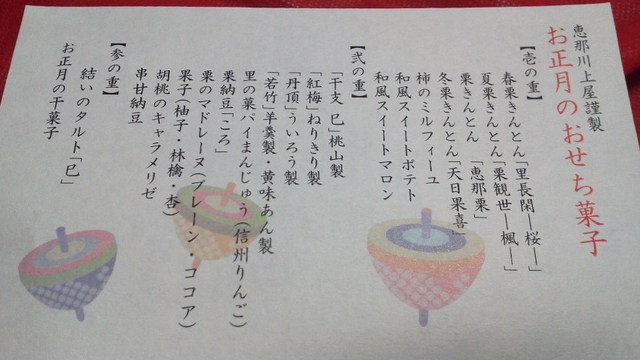 恵那川上屋謹製
お正月のおせち菓子
【壱の重】
春栗きんとん「里長閑―桜―」
夏栗きんとん「栗観世―楓―」
栗きんとん「恵那栗」
冬栗きんとん「天日果喜」
柿のミルフィーユ
和風スイートポテト
和風スイートマロン
【弐の重】
「干支 巳」桃山製
「紅梅」ねりきり製
「丹頂」ういろう製
「若竹」羊羹製・黄味あん製
里の菓パイまんじゅう(信州りんご)
栗納豆「ころ」
栗のマドレーヌ(プレーン・ココア)
果子(柚子・林檎・杏)
胡桃のキャラメリゼ
串甘納豆
【参の重】
結いのタルト「巳」
お正月の干菓子